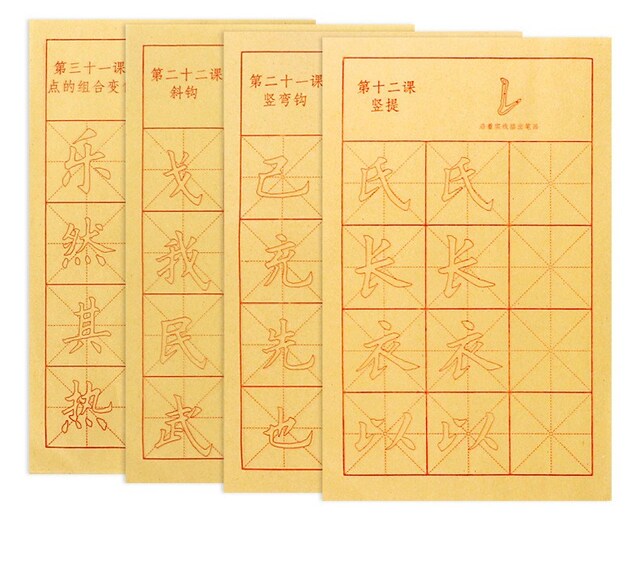 第三十一课
点的组合变
乐
然
其
热
第二十二课
斜钩
戈
我
民
武
第二十一课
竖弯钩
己
充
先
也
第十二课
竖提
氏 氏
长 长
衣 衣
以 以